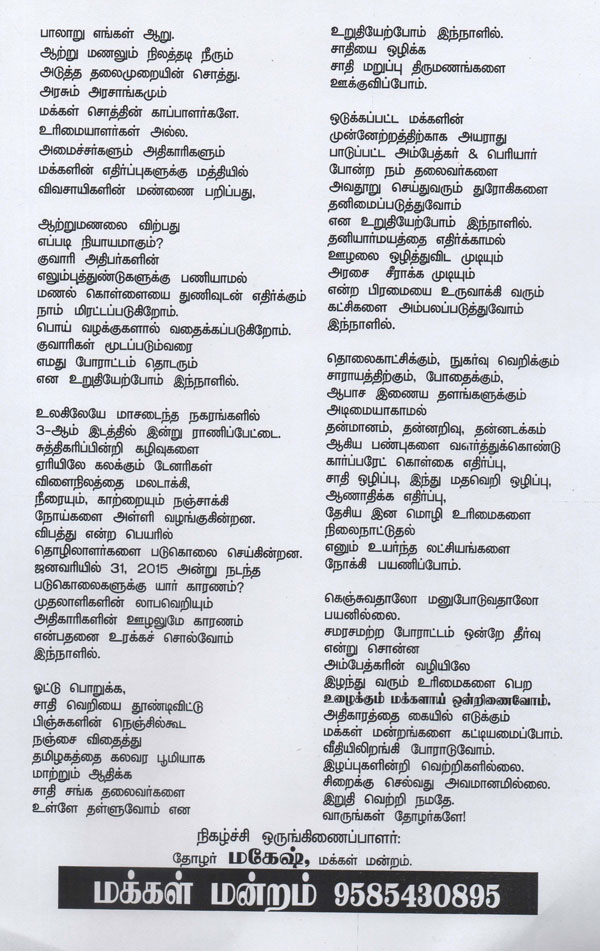 பாலாறு எங்கள் ஆறு.
ஆற்று மணலும் நிலத்தடி நீரும்
அடுத்த தலைமுறையின் சொத்து.
அரசும் அரசாங்கமும்
மக்கள் சொத்தின் காப்பாளர்களே.
உரிமையாளர்கள் அல்ல.
அமைச்சர்களும் அதிகாரிகளும்
மக்களின் எதிர்ப்புகளுக்கு மத்தியில்
விவசாயிகளின் மண்ணை பறிப்பது,
ஆற்றுமணலை விற்பது
எப்படி நியாயமாகும்?
குவாரி அதிபர்களின்
எலும்புத்துண்டுகளுக்கு பணியாமல்
மணல் கொள்ளையை துணிவுடன் எதிர்க்கும்
நாம் மிரட்டப்படுகிறோம்.
பொய் வழக்குகளால் வதைக்கப்படுகிறோம்.
குவாரிகள் மூடப்படும்வரை
எமது போராட்டம் தொடரும்
என உறுதியேற்போம் இந்நாளில்.
உலகிலேயே மாசடைந்த நகரங்களில்
3-ஆம் இடத்தில் இன்று ராணிப்பேட்டை.
சுத்திகரிப்பின்றி கழிவுகளை
ஏரியிலே கலக்கும் டேனரிகள்
விளைநிலத்தை மலடாக்கி,
நீரையும், காற்றையும் நஞ்சாக்கி
நோய்களை அள்ளி வழங்குகின்றன.
விபத்து என்ற பெயரில்
தொழிலாளர்களை படுகொலை செய்கின்றன.
ஜனவரியில் 31, 2015 அன்று நடந்த
படுகொலைகளுக்கு யார் காரணம்?
முதலாளிகளின் லாபவெறியும்
அதிகாரிகளின் ஊழலுமே காரணம்
என்பதனை உரக்கச் சொல்வோம்
இந்நாளில்.
ஓட்டு பொறுக்க,
சாதி வெறியை தூண்டிவிட்டு
பிஞ்சுகளின் நெஞ்சில்கூட
நஞ்சை விதைத்து
தமிழகத்தை கலவர பூமியாக
மாற்றும் ஆதிக்க
சாதி சங்க தலைவர்களை
உள்ளே தள்ளுவோம் என
உறுதியேற்போம் இந்நாளில்.
சாதியை ஒழிக்க
சாதி மறுப்பு திருமணங்களை
ஊக்குவிப்போம்.
ஒடுக்கப்பட்ட மக்களின்
முன்னேற்றத்திற்காக அயராது
பாடுபட்ட அம்பேத்கர் & பெரியார்
போன்ற நம் தலைவர்களை
அவதூறு செய்துவரும் துரோகிகளை
தனிமைப்படுத்துவோம்
என உறுதியேற்போம் இந்நாளில்.
தனியார்மயத்தை எதிர்க்காமல்
ஊழலை ஒழித்துவிட முடியும்
அரசை சீராக்க முடியும்
என்ற பிரமையை உருவாக்கி வரும்
கட்சிகளை அம்பலப்படுத்துவோம்
இந்நாளில்.
தொலைகாட்சிக்கும், நுகர்வு வெறிக்கும்
சாராயத்திற்கும், போதைக்கும்,
ஆபாச இணைய தளங்களுக்கும்
அடிமையாகாமல்
தன்மானம், தன்னறிவு, தன்னடக்கம்
ஆகிய பண்புகளை வளர்த்துக்கொண்டு
கார்ப்பரேட் கொள்கை எதிர்ப்பு,
சாதி ஒழிப்பு, இந்து மதவெறி ஒழிப்பு,
ஆணாதிக்க எதிர்ப்பு,
தேசிய இன மொழி உரிமைகளை
நிலைநாட்டுதல்
எனும் உயர்ந்த லட்சியங்களை
நோக்கி பயணிப்போம்.
கெஞ்சுவதாலோ மனுபோடுவதாலோ
பயனில்லை.
சமரசமற்ற போராட்டம் ஒன்றே தீர்வு
என்று சொன்ன
அம்பேத்கரின் வழியிலே
இழந்து வரும் உரிமைகளை பெற
உழைக்கும் மக்களாய் ஒன்றிணைவோம்.
அதிகாரத்தை கையில் எடுக்கும்
மக்கள் மன்றங்களை கட்டியமைப்போம்.
வீதியிலிறங்கி போராடுவோம்.
இழப்புகளின்றி வெற்றிகளில்லை.
சிறைக்கு செல்வது அவமானமில்லை.
இறுதி வெற்றி நமதே.
வாருங்கள் தோழர்களே!
நிகழ்ச்சி ஒருங்கிணைப்பாளர்:
தோழர் மகேஷ், மக்கள் மன்றம்.
மக்கள் மன்றம் 9585430895